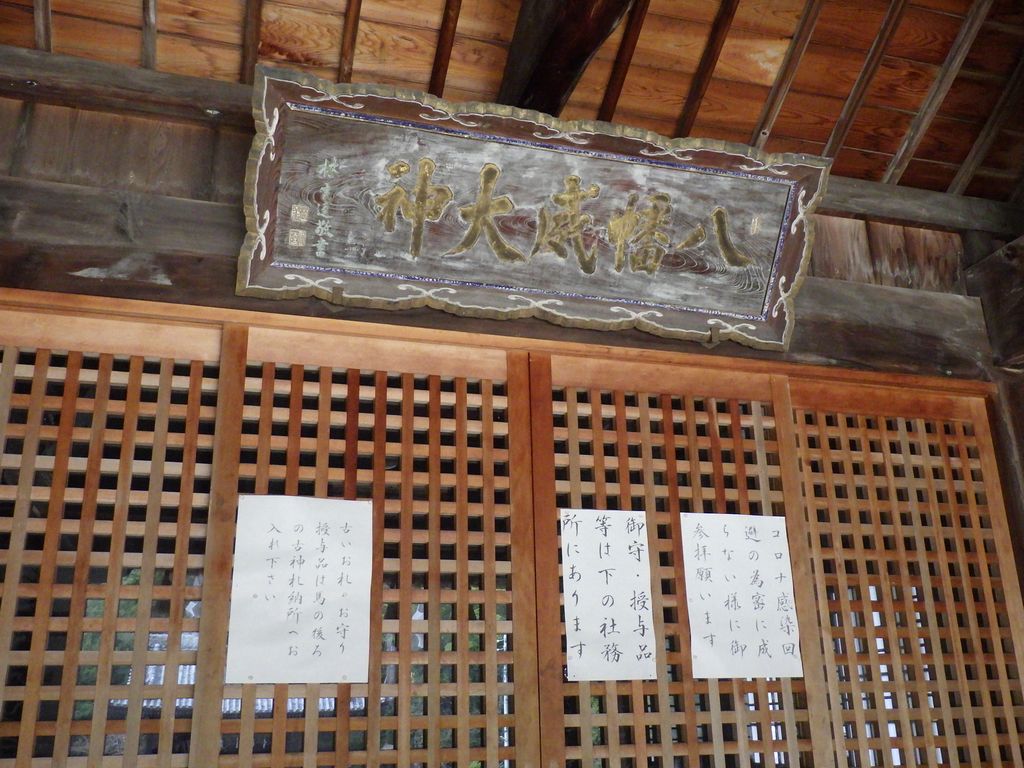 八幡威大神
敬書
コロナ感染回
避の為密に成
らない様に御
参拝願います
御守・授与品
等は下の社務
所にあります
古いお札。お守り
授与品は馬の後ろ
の古神札納所へお
入れ下さい